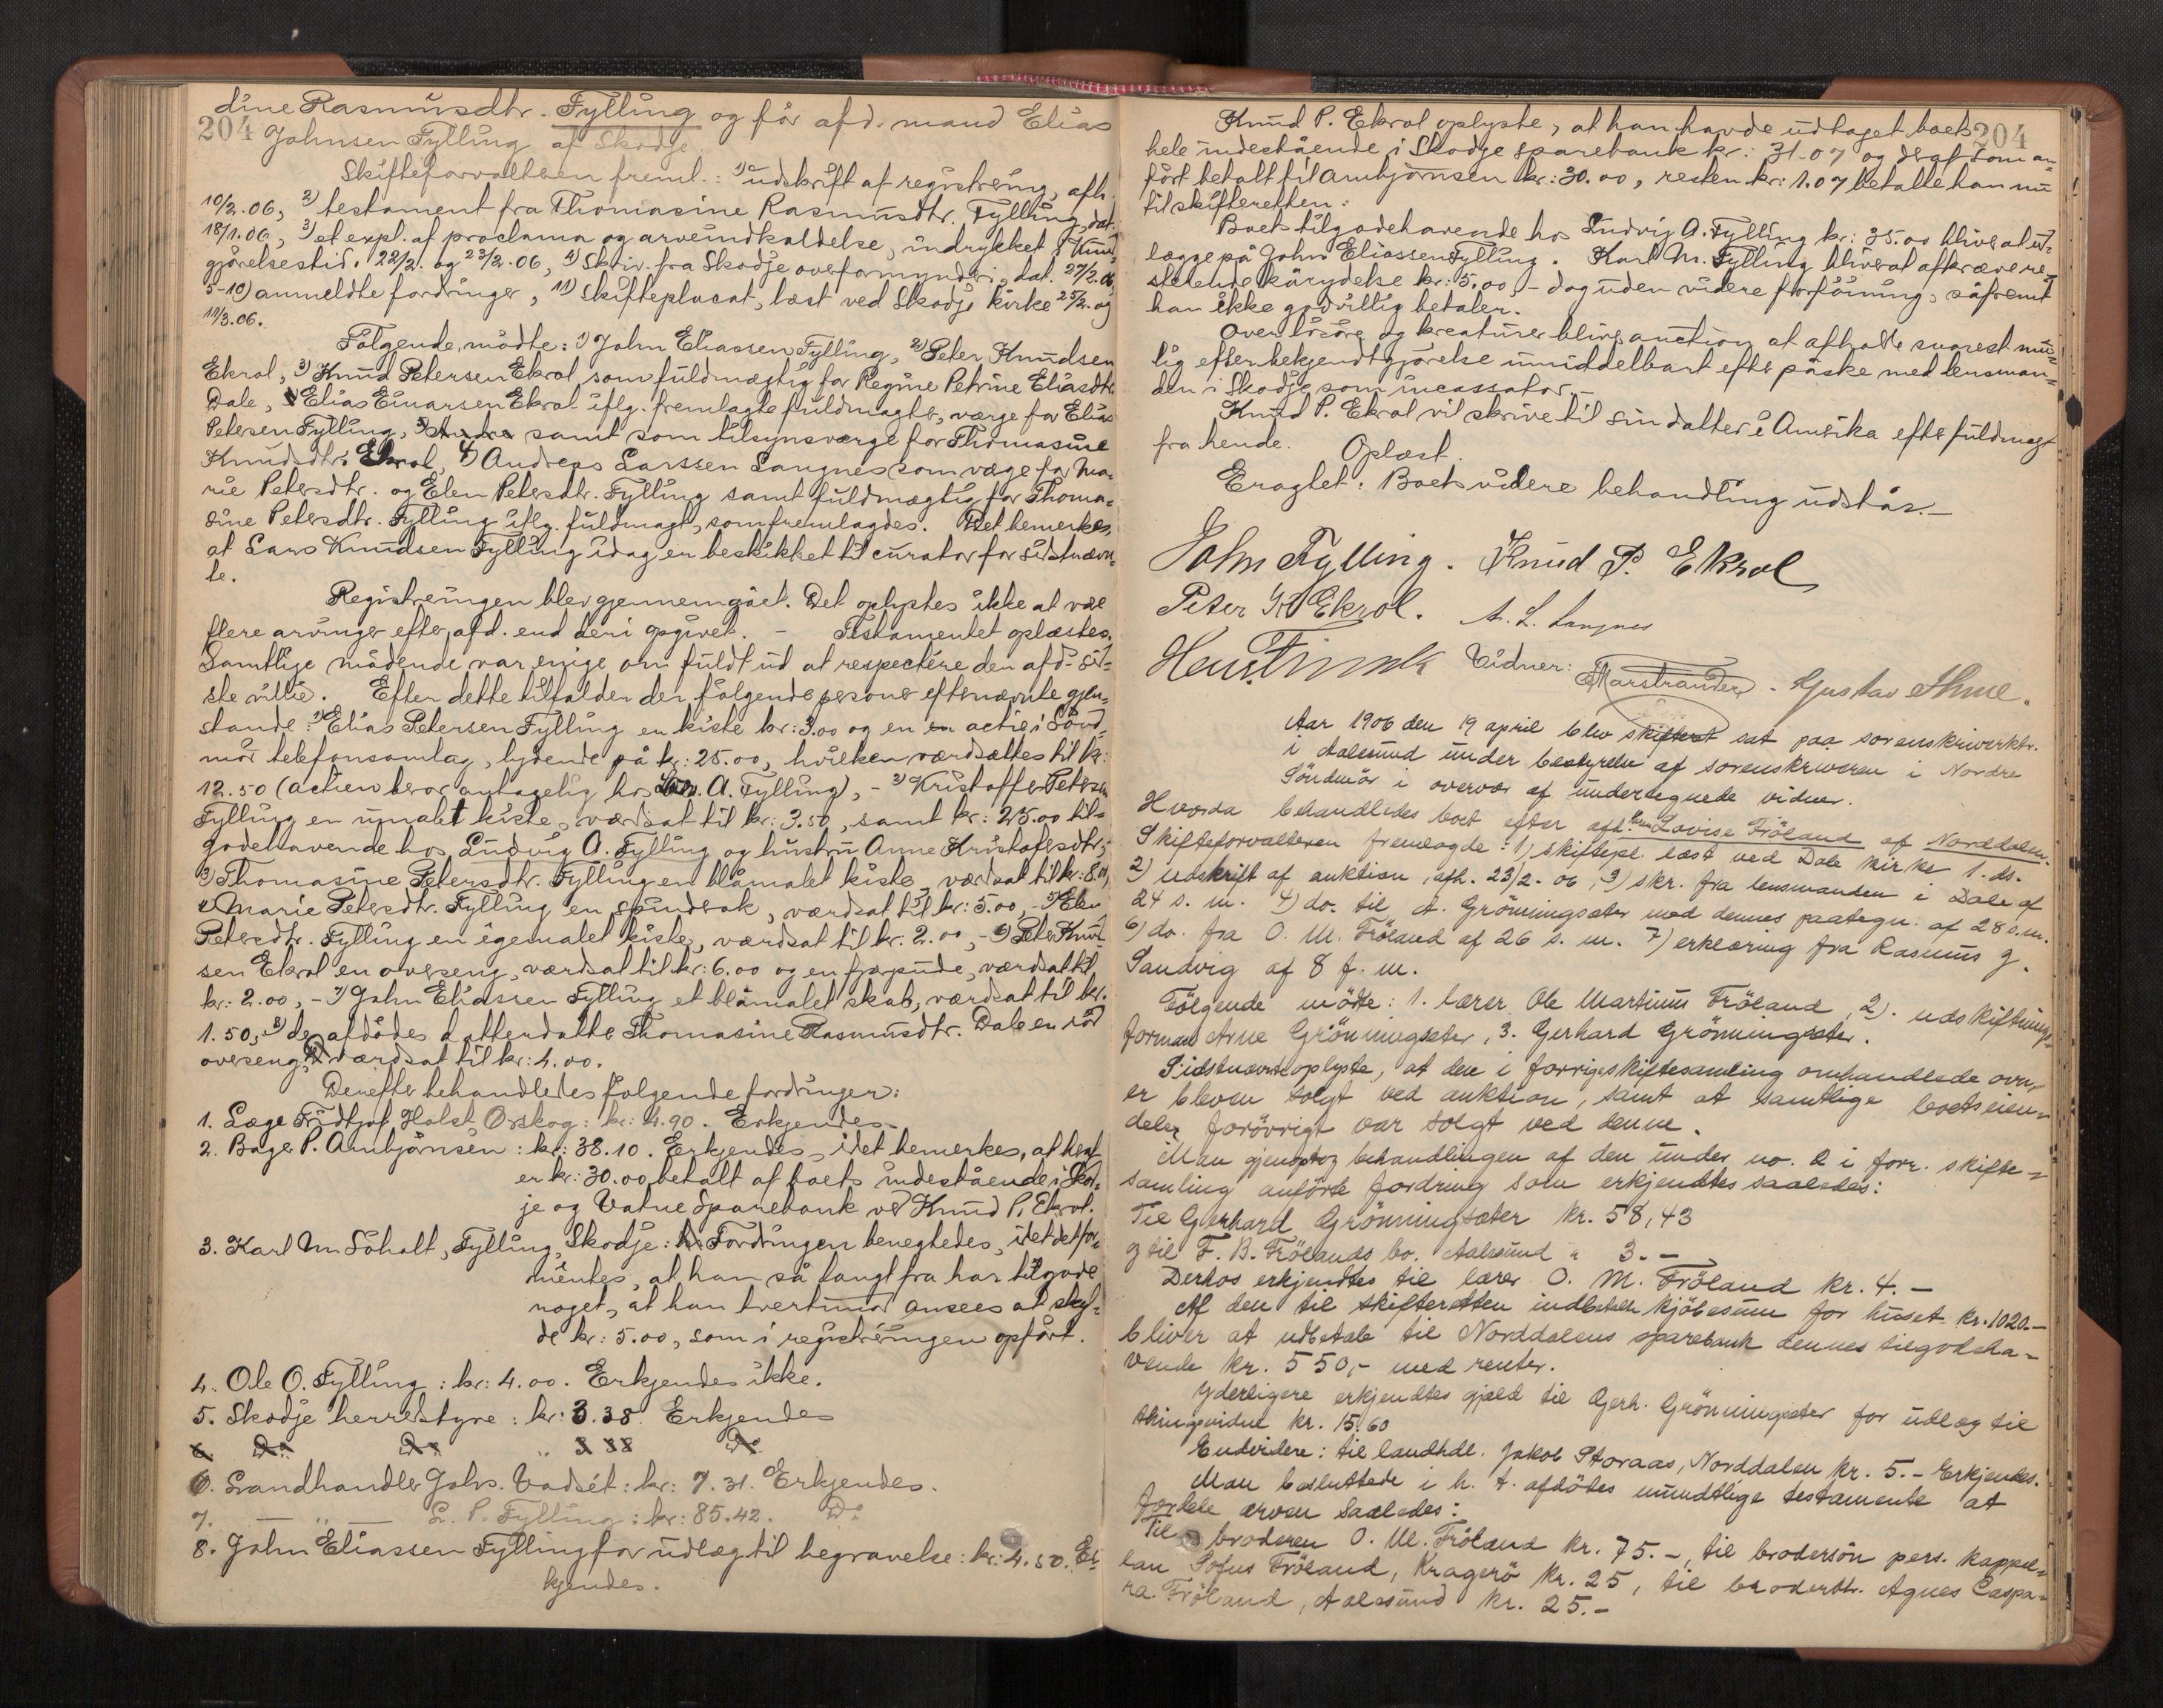 dine Rasmusdtr. Fylling og for afd. mand Elias
204
Johnsen Fylling af Skodje.
Skifteforvalteren freml.: 1) udskrift af registrering, afh.
10/2.06, 2) testament fra Thomasine Rasmusdtr. Fylling, dat.
18/1.06, 3) et expl. af proclama og arveindkaldelse, indrykket i Kund-
gjørelsestid. 22/2. og 23/2.06, 4) Skriv. fra Skodje overformynderi, dat. 27/2.06,
5-10) anmeldte fordringer, 11) Skifteplacat, læst ved Skodje kirke 25/2. og
11/3.06.
Følgende mødte: 1) John Eliassen Fylling, 2) Peter Knudsen
Ekrol, 3) Knud Petersen Ekrol som fuldmægtig for Regine Petrine Eliasdtr.
Dale, Elias Einarsen Ekrol iflg. fremlagte fuldmagter, værge for Elias
Petersen Fylling, samt som tilsynsværge for Thomasine
Knudsdtr. Ekrol, 4) Andreas Larssen Langnes som værge for Ma-
rie Petersdtr. og Elen Petersdtr. Fylling samt fuldmægtig for Thoma-
sine Petersdtr. Fylling iflg. fuldmagt, som fremlagdes. Det bemerkes,
at Lars Knudsen Fylling idag er beskikket til curator for sidstnævn-
te.
Registreringen blev gjennemgået. Det oplystes ikke at være
flere arvinger efter afd. end deri opgivet. – Testamentet oplæstes.
Samtlige mødende var enige om fuldt ud at respectere den afd. sid-
ste villie. Efter dette tilfalder der følgende personer efternævnte gjen-
stande: 1) Elias Petersen Fylling en kiste kr: 3.00 og en actie i Sønd-
mør telefonsamlag, lydende på kr: 25.00, hvilken værdsættes til kr:
12.50 (actien beror antagelig hos A. Fylling), – 2) Kristoffer Petersen
Fylling en umalet kiste, værdsat til kr: 3.50, samt kr: 25.00 til-
godehavende hos Ludvig A. Fylling og hustru Anne Kristofersdtr.;
3) Thomasine Petersdtr. Fylling en blåmalet kiste, værdsat til kr: 8.00,
4) Marie Petersdtr. Fylling en spinderok, værdsat til kr: 5.00, – 5) Elen
Petersdtr. Fylling en egemalet kiste, værdsat til kr. 2.00, – 6) Peter Knud-
sen Ekrol en overseng, værdsat til kr: 6.00 og en fjærpude, værdsat til
kr: 2.00, – 7) John Eliassen Fylling et blåmalet skab, værdsat til kr.
1.50, 8) den afdødes datterdatter Thomasine Rasmusdtr. Dale en rød
overseng, værdsat til kr: 4.00.
Derefter behandledes følgende fordringer:
1. Læge Fridtjof Holst, Ørskog: kr: 4.90. Erkjendes.
2. Bager P. Arnbjørnsen: kr: 38.10. Erkjendes, idet bemerkes, at heraf
er kr: 30.00 betalt af boets indestående i Skod-
je og Vatne Sparebank ved Knud P. Ekrol.
3. Karl M. Soholt, Fylling, Skodje: Fordringen benegtedes, idet det for-
mentes, at han så langt fra har tilgode
noget, at han tvertimod ansees at skyl-
de kr: 5.00, som i registreringen opført.
4. Ole O. Fylling: kr: 4.00. Erkjendes ikke.
5. Skodje herredstyre: kr: 3.38. Erkjendes
6. Do. Do. " 3 38 Do.
6. Landhandler Johs. Vadset: kr: 7.31. Erkjendes.
7. — " — L. P. Fylling: kr: 85.42. Do.
8. John Eliassen Fylling for udlæg til begravelse: kr: 4.50. Er-
kjendes.
Knud P. Ekrol oplyste, at han havde udtaget boets
204
hele indestående i Skodje sparebank kr: 31.07 og deraf som an-
ført betalt til Arnbjørnsen kr: 30.00, resten kr: 1.07 betalte han nu
til skifteretten.
Boets tilgodehavende hos Ludvig A. Fylling kr: 35.00 bliver at ud-
lægge på John Eliassen Fylling. Karl M. Fylling bliver at afkræve re-
sterende kårydelse kr: 5.00, – dog uden videre forføining, såfremt
han ikke godvillig betaler.
Over løsøre og kreaturer blir auction at afholde snarest mu-
lig efter bekjendtgjørelse umiddelbart efter påske med lensman-
den i Skodje som incassator.–
Knud P. Ekrol vil skrive til sin datter i Amerika efter fuldmagt
fra hende. Oplæst.
Eragtet: Boets videre behandling udstår.–
John Fylling. Knud P. Ekrol
Peter K Ekrol. A. L. Langnes
Vidner: Marstrander. Gustav
Aar 1906 den 19 april blev skifteret sat paa sorenskriverktr.
i Aalesund under bestyrelse af sorenskriveren i Nordre
Søndmør i overvær af undertegnede vidner.
Hvorda behandledes boet efter afd. Lovise Fröland af Norddalen.
Skifteforvalteren fremlagde: 1) skiftepl. læst ved Dale kirke 1. ds.
2) udskrift af auktion, afh. 23/2-06, 3) skr. fra lensmanden i Dale af
24 s. m. 4) do. til A. Grönningsæter med dennes paategn. af 28 s.m.
6) do. fra O. M. Fröland af 26 s. m. 7) erklæring fra Rasmus J.
Sandvig af 8 f. m.
Følgende mødte: 1. lærer Ole Martinus Fröland, 2). udskiftnings-
formand Arne Grönningsæter, 3. Gerhard Grönningsæter.
Sidstnævnte oplyste, at den i forrige skiftesamling omhandlede ovn
er bleven solgt ved auktion, samt at samtlige boets eien-
deler forövrigt var solgt ved denne.
Man gjenoptog behandlingen af den under no. 2 i forr. skifte-
samling anførte fordring som erkjendtes saaledes:
Til Gerhard Grönningsæter kr. 58,43
og til F. B. Frölands bo, Aalesund " 3.–
Derhos erkjendtes til lærer O. M. Fröland kr. 4.–
Af den til skifteretten indbetalte kjöbesum for huset kr. 1020.–
bliver at udbetale til Norddalens sparebank dennes tilgodeha-
vende kr. 550,– med renter.
Yderligere erkjendtes gjæld til Gerh. Grönningsæter for udlæg til
thingsvidne kr. 15.60
Endvidere: til landhdl. Jakob Storaas, Norddalen kr. 5.– Erkjendes.
Man besluttede i h. t. afdödes mundtlige testamente at
fordele arven saaledes:
Til broderen O. M. Fröland kr. 75.–, til brodersön pers. kappel-
lan Sofus Fröland, Kragerö kr. 25, til broderdtr. Agnes Caspa-
ra Fröland, Aalesund kr. 25.–